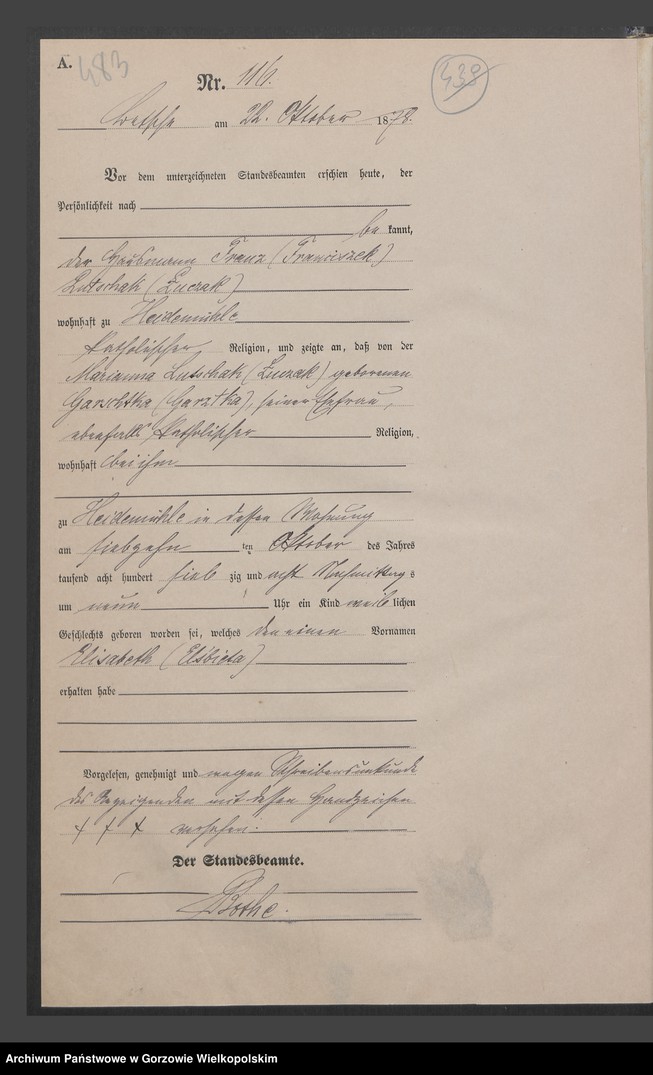 A. 483
Nr. 116. 438
Betsche am 22. Oktober 1878.
Vor dem unterzeichneten Standesbeamten erschien heute, der
Persönlichkeit nach
be kannt,
der Hausmann Franz (Franciszek)
Lutschak (Łuczak)
wohnhaft zu Heidemühle
katholischer Religion, und zeigte an, daß von der
Marianna Lutschak (Łuczak) geborenen
seiner Ehefrau,
ebenfalls katholischer Religion,
wohnhaft bei ihm
zu Heidemühle in dessen Wohnung
am siebzehn ten Oktober des Jahres
tausend acht hundert sieb zig und acht Nachmittag s
um neun Uhr ein Kind weib lichen
Geschlechts geboren worden sei, welches den einen Vornamen
Elisabeth (Elsbieta)
erhalten habe
Vorgelesen, genehmigt und wegen Schreibensunkunde
des Anzeigenden mit dessen Handzeichen
+ + + versehen.
Der Standesbeamte.
Bothe.
Archiwum Państwowe w Gorzowie Wielkopolskim